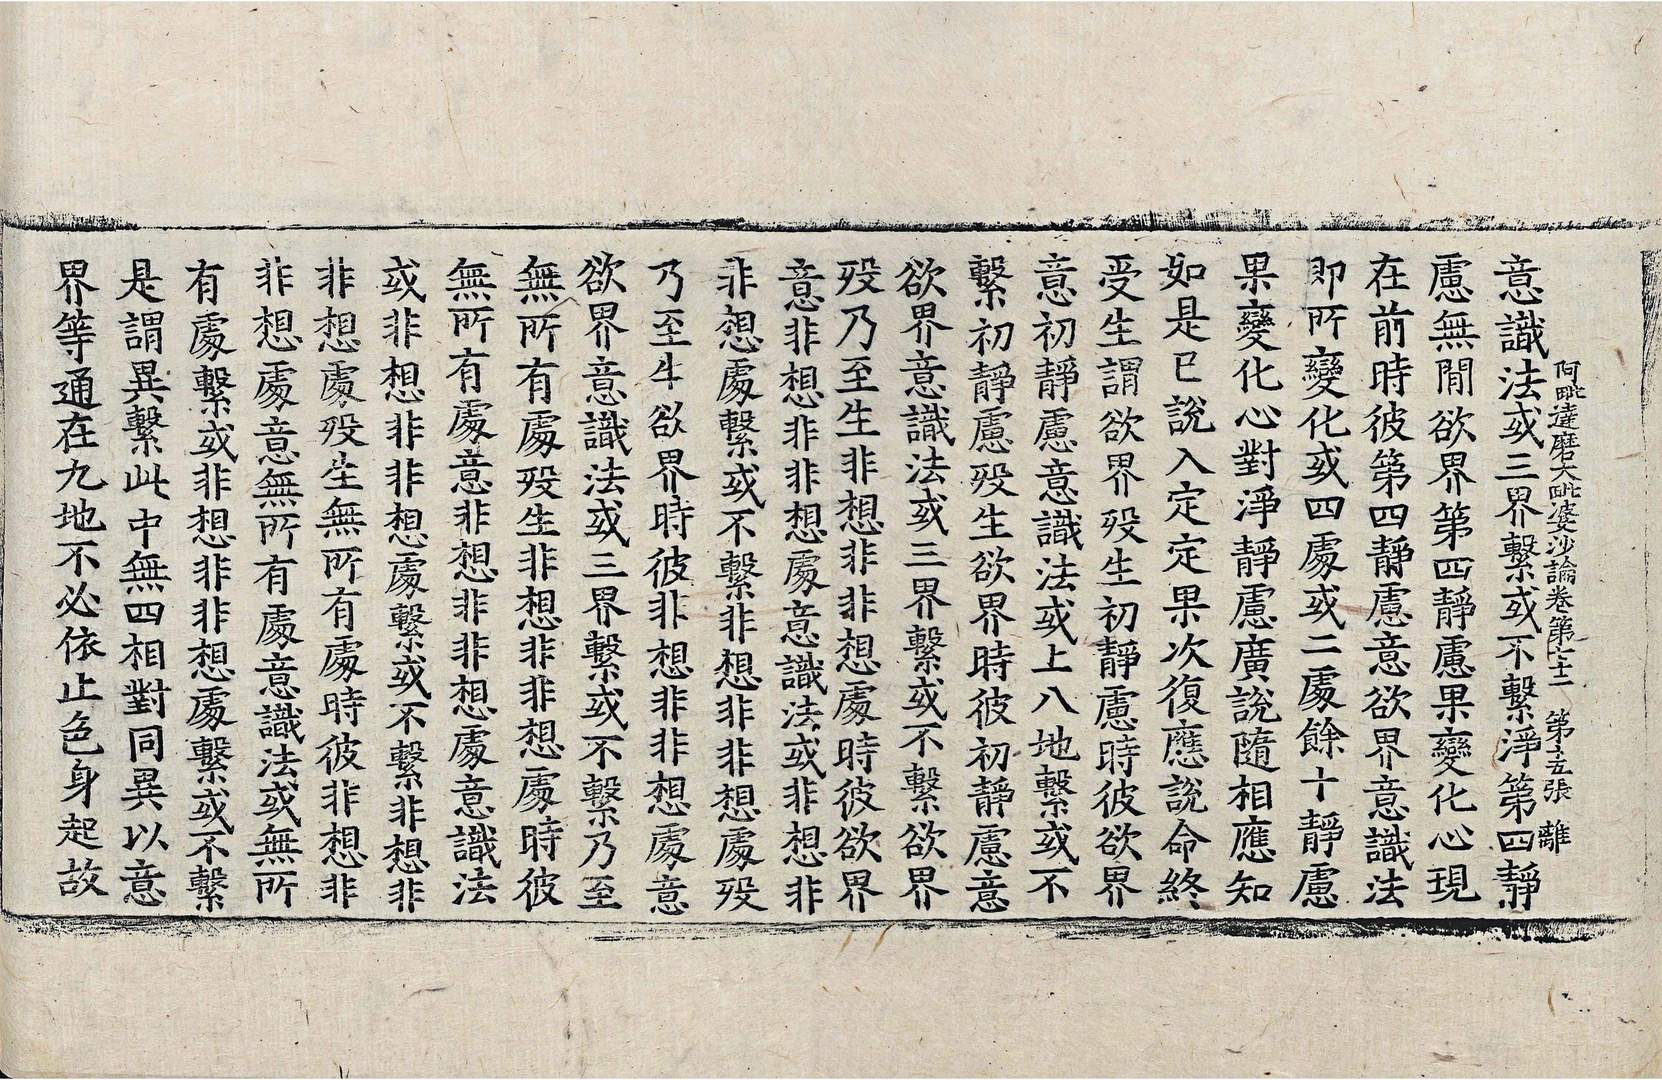 阿毗達磨大毗婆沙論卷第七十二 第十五張 離
意識法或三界繫或不繫淨第四靜
慮無間欲界第四靜慮果變化心現
在前時彼第四靜慮意欲界意識法
即所變化或四處或二處餘十靜慮
果變化心對淨靜慮廣說隨相應知
如是已說入定定果次復應說命終
受生謂欲界歿生初靜慮時彼欲界
意初靜慮意識法或上八地繫或不
繫初靜慮歿生欲界時彼初靜慮意
欲界意識法或三界繫或不繫欲界
歿乃至生非想非非想處時彼欲界
意非想非非想處意識法或非想非
非想處繫或不繫非想非非想處歿
乃至生欲界時彼非想非非想處意
欲界意識法或三界繫或不繫乃至
無所有處歿生非想非非想處時彼
無所有處意非想非非想處意識法
或非想非非想處繫或不繫非想非
非想處歿生無所有處時彼非想非
非想處意無所有處意識法或無所
有處繫或非想非非想處繫或不繫
是謂異繫此中無四相對同異以意
界等通在九地不必依止色身起故